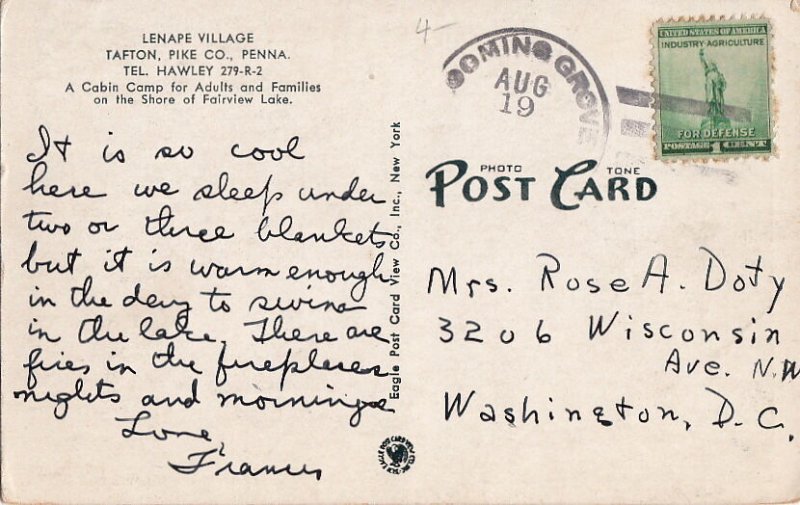 LENAPE VILLAGE
TAFTON, PIKE CO., PENNA.
TEL. HAWLEY 279-R-2
A Cabin Camp for Adults and Families
on the Shore of Fairview Lake.
It is so cool
here we sleep under
two or three blankets
but it is warm enough
in the day to swim
in the lake. There are
fires in the fireplaces
nights and mornings
Love,
Frances
Eagle Post Card View Co., Inc., New York
4-
OOMING GROVE
AUG
19
UNITED STATES OF AMERICA
INDUSTRY AGRICULTURE
FOR DEFENSE
POSTAGE 1 CENT
PHOTO TONE
POST CARD
Mrs. Rose A. Doty
3206 Wisconsin
Ave. N.W
Washington, D.C.